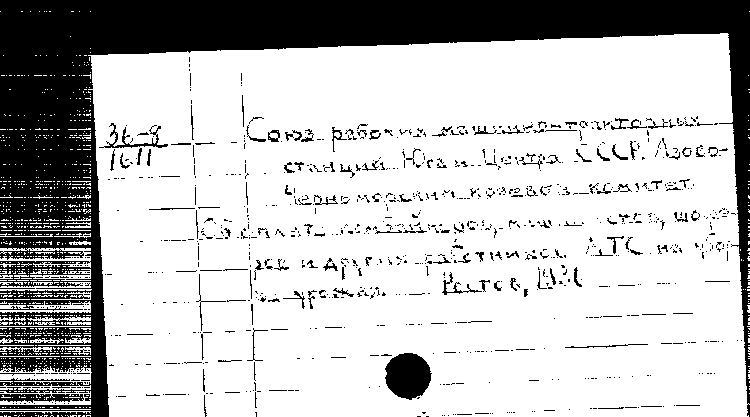 36-8
1611
Союз рабочих машинно-тракторных
станций Юга и Центра СССР. Азово-
Черноморский краевой комитет
Об оплате комбайнеров, машинистов, шофе-
ров и других работников МТС на убор-
ке урожая Ростов, 1936